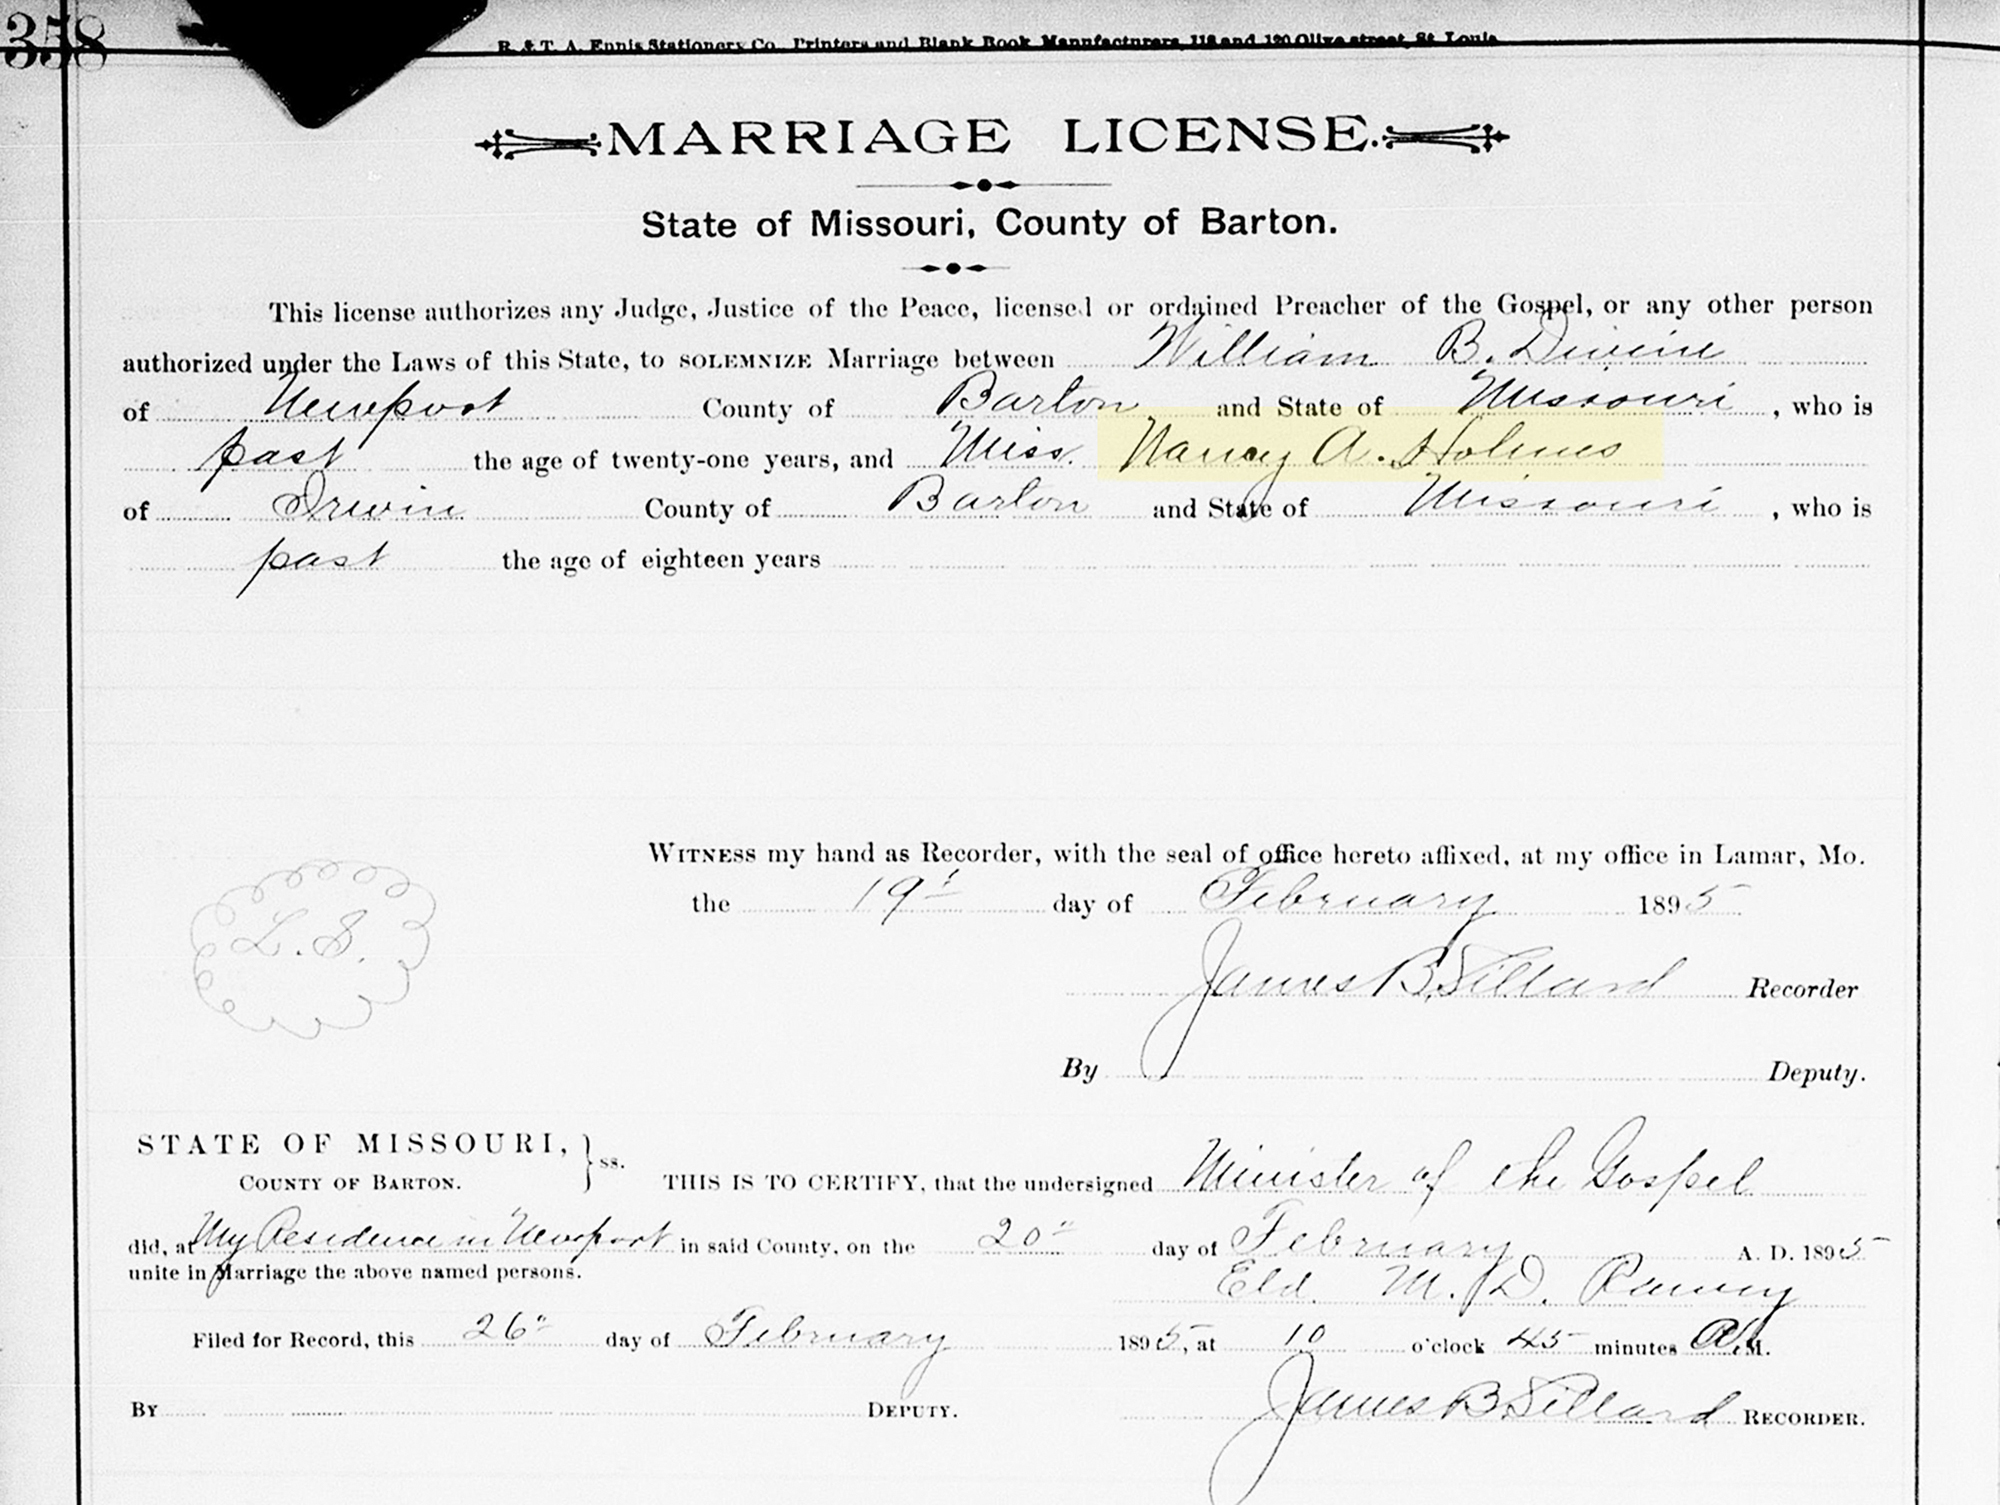 358
R. & T. A. Ennis Stationery Co., Printers and Blank Book Manufacturers, 118 and 120 Olive street, St. Louis
MARRIAGE LICENSE.
State of Missouri, County of Barton.
This license authorizes any Judge, Justice of the Peace, licensed or ordained Preacher of the Gospel, or any other person
authorized under the Laws of this State, to SOLEMNIZE Marriage between William B. Divine
of Newport County of Barton and State of Missouri, who is
past the age of twenty-one years, and Miss. Nancy A. Holmes
of Irwin County of Barton and State of Missouri, who is
past the age of eighteen years
WITNESS my hand as Recorder, with the seal of office hereto affixed, at my office in Lamar, Mo.
the 19" day of February 1895
L. S.
James B. Recorder
By Deputy.
STATE OF MISSOURI, } ss.
COUNTY OF BARTON.
THIS IS TO CERTIFY, that the undersigned Minister of the Gospel
did, at My Residence in Newport in said County, on the 20" day of February A. D. 1895
unite in Marriage the above named persons.
Eld. M. D.
Filed for Record, this 26" day of February 1895, at 10 o'clock 45 minutes A. M.
By DEPUTY. James B. RECORDER.